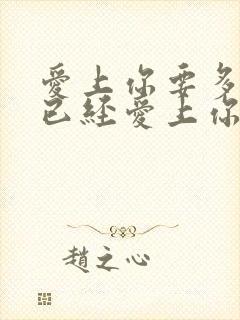 愛上你要多
已經愛上你
趙之心